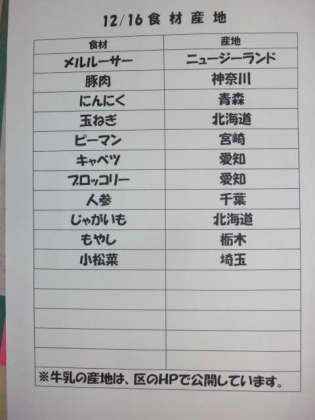 12/16 食材産地
食材 産地
メルルーサー ニュージーランド
豚肉 神奈川
にんにく 青森
玉ねぎ 北海道
ピーマン 宮崎
キャベツ 愛知
ブロッコリー 愛知
人参 千葉
じゃがいも 北海道
もやし 栃木
小松菜 埼玉
※牛乳の産地は、区のHPで公開しています。